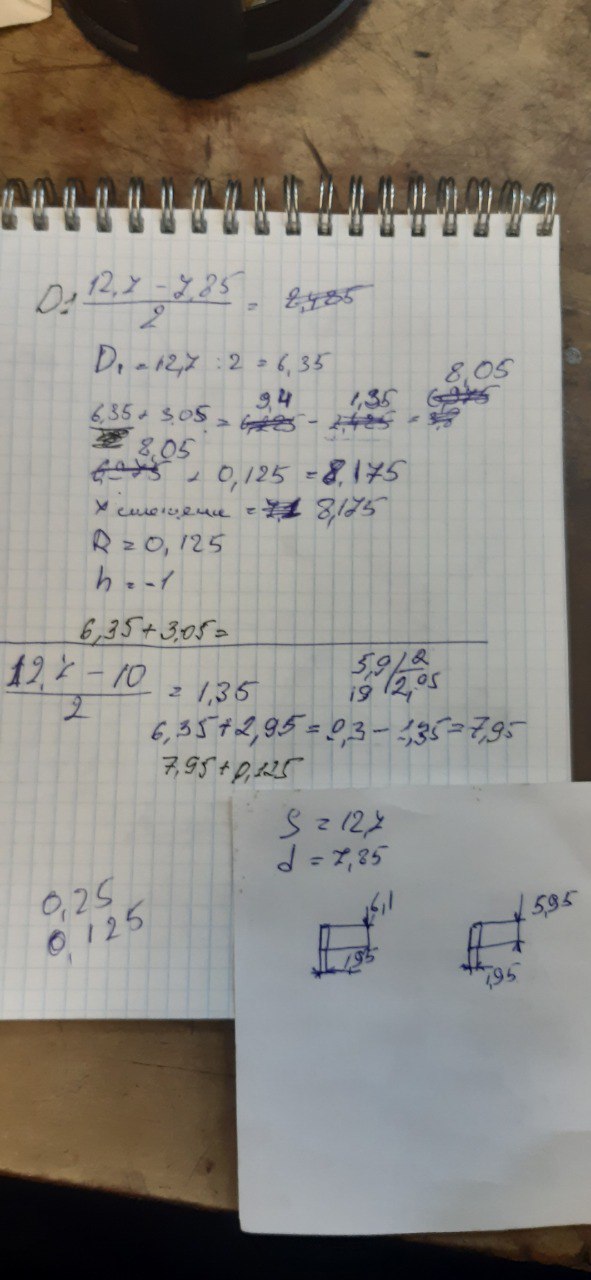 D1 12,7 - 7,85 / 2 = 2,425
D₁ = 12,7 : 2 = 6,35
8,05
9,4 1,35
6,35 + 3.05 = - =
8,05
+ 0,125 = 8.175
x смещения = 8,175
R = 0,125
h = -1
6,35 + 3,05 =
12,7 - 10 / 2 = 1,35
5,9 / 2
19 2,95
6,35 + 2,95 = 9,3 - 1,35 = 7,95
7,95 + 0,125
S = 12,7
d = 7,85
0,25
0,125
6,1
1,95
5,95
1,95